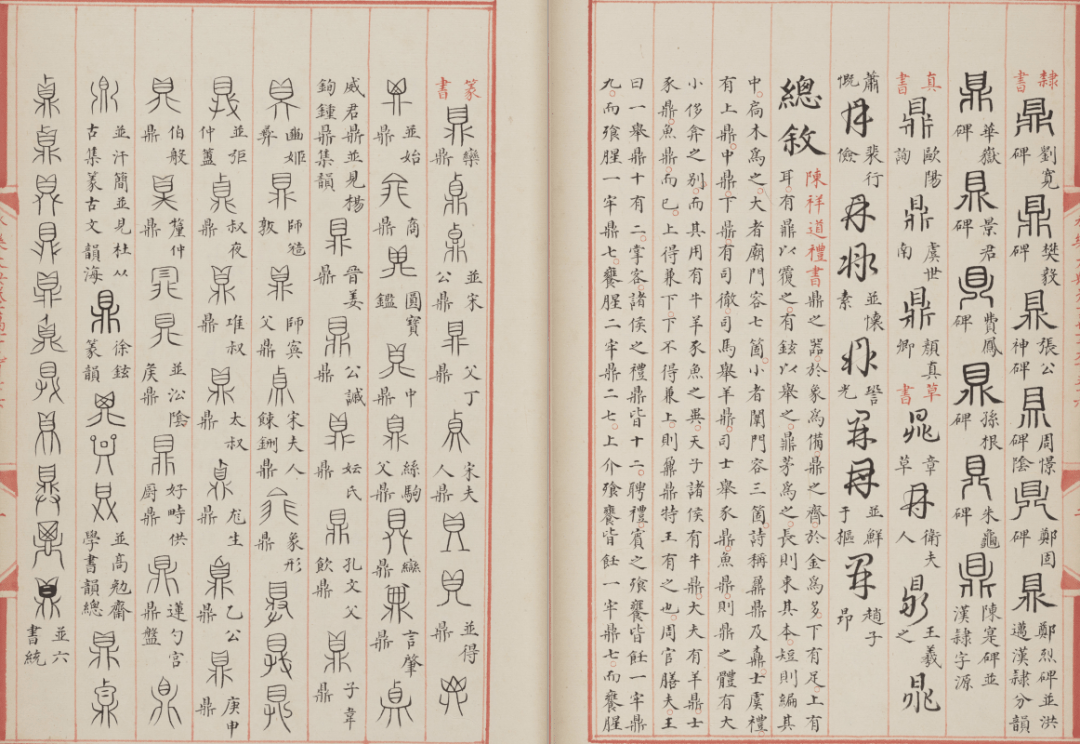 隸書 鼎 劉寬碑 鼎 樊毅碑 鼎 張公神碑 鼎 周憬碑陰 鼎 鄭固碑 鼎 鄭烈碑並洪邁漢隸分韻
鼎 華嶽碑 鼎 景君碑 鼎 費鳳碑 鼎 孫根碑 鼎 朱龜碑 鼎 陳寔碑並漢隸字源
真書 鼎 歐陽詢 鼎 虞世南 鼎 顏真卿 草書 鼎 章草 鼎 衛夫人 鼎 王羲之 鼎
蕭慨 鼎 裴行儉 鼎 鼎 並懷素 鼎 光 鼎 鼎 並鮮于樞 鼎 趙子昂
總敘 陳祥道禮書鼎之器。於象為備鼎之齊。於金為多。下有足。上有
耳。有鼏以覆之。有鉉以舉之。鼏茅為之。長則束其本。短則編其
中。扃木為之。大者廟門容七箇。小者闈門容三箇。詩稱鼐鼎及鼒。士虞禮
有上鼎。中鼎。下鼎。有司徹。司馬舉羊鼎。司士舉豕鼎。魚鼎。則鼎之體有大
小侈弇之别。而其用有牛羊豕魚之異。天子諸侯有牛鼎。大夫有羊鼎士
豕鼎。魚鼎。而已。上得兼下。下不得兼上。則鼐鼎特王有之也。周官膳夫。王
曰一舉鼎十有二。掌客。諸侯之禮鼎皆十二。聘禮。賓之飧饔皆飪一牢鼎
九。而飧腥一牢鼎七。饔腥二牢鼎二七。上介飧饔皆飪一牢鼎七。而饔腥
篆書 鼎 欒鼎 鼎 鼎 並宋公鼎 鼎 父丁鼎 鼎 宋夫人鼎 鼎 鼎 並得鼎 鼎
鼎 並始鼎 鼎 商 鼎 圓寶鑑 鼎 中 鼎 絲駒父鼎 鼎 䜌鼎 鼎 言肇鼎 鼎
威君鼎並見楊鉤鍾鼎集韻 鼎 晉姜鼎 鼎 公諴鼎 鼎 妘氏鼎 鼎 孔文父飲鼎 鼎 子韋鼎
鼎 豳姬彝 鼎 師敦 鼎 師寏父鼎 鼎 宋夫人餗鉶鼎 鼎 象形鼎 鼎 鼎 鼎
鼎 並弡仲簠 鼎 叔夜鼎 鼎 叔鼎 鼎 太叔鼎 鼎 尨生鼎 鼎 乙公鼎 鼎 庚申鼎
鼎 伯般鼎 鼎 釐仲鼎 鼎 鼎 並汾陰侯鼎 鼎 好畤供廚鼎 鼎 蓮勺宮鼎盤 鼎
鼎 並汗簡並見杜从古集篆古文韻海 鼎 徐鉉篆韻 鼎 鼎 鼎 並高勉齋學書韻總 鼎 鼎
鼎 鼎 鼎 鼎 鼎 鼎 鼎 鼎 鼎 鼎 鼎 並六書統